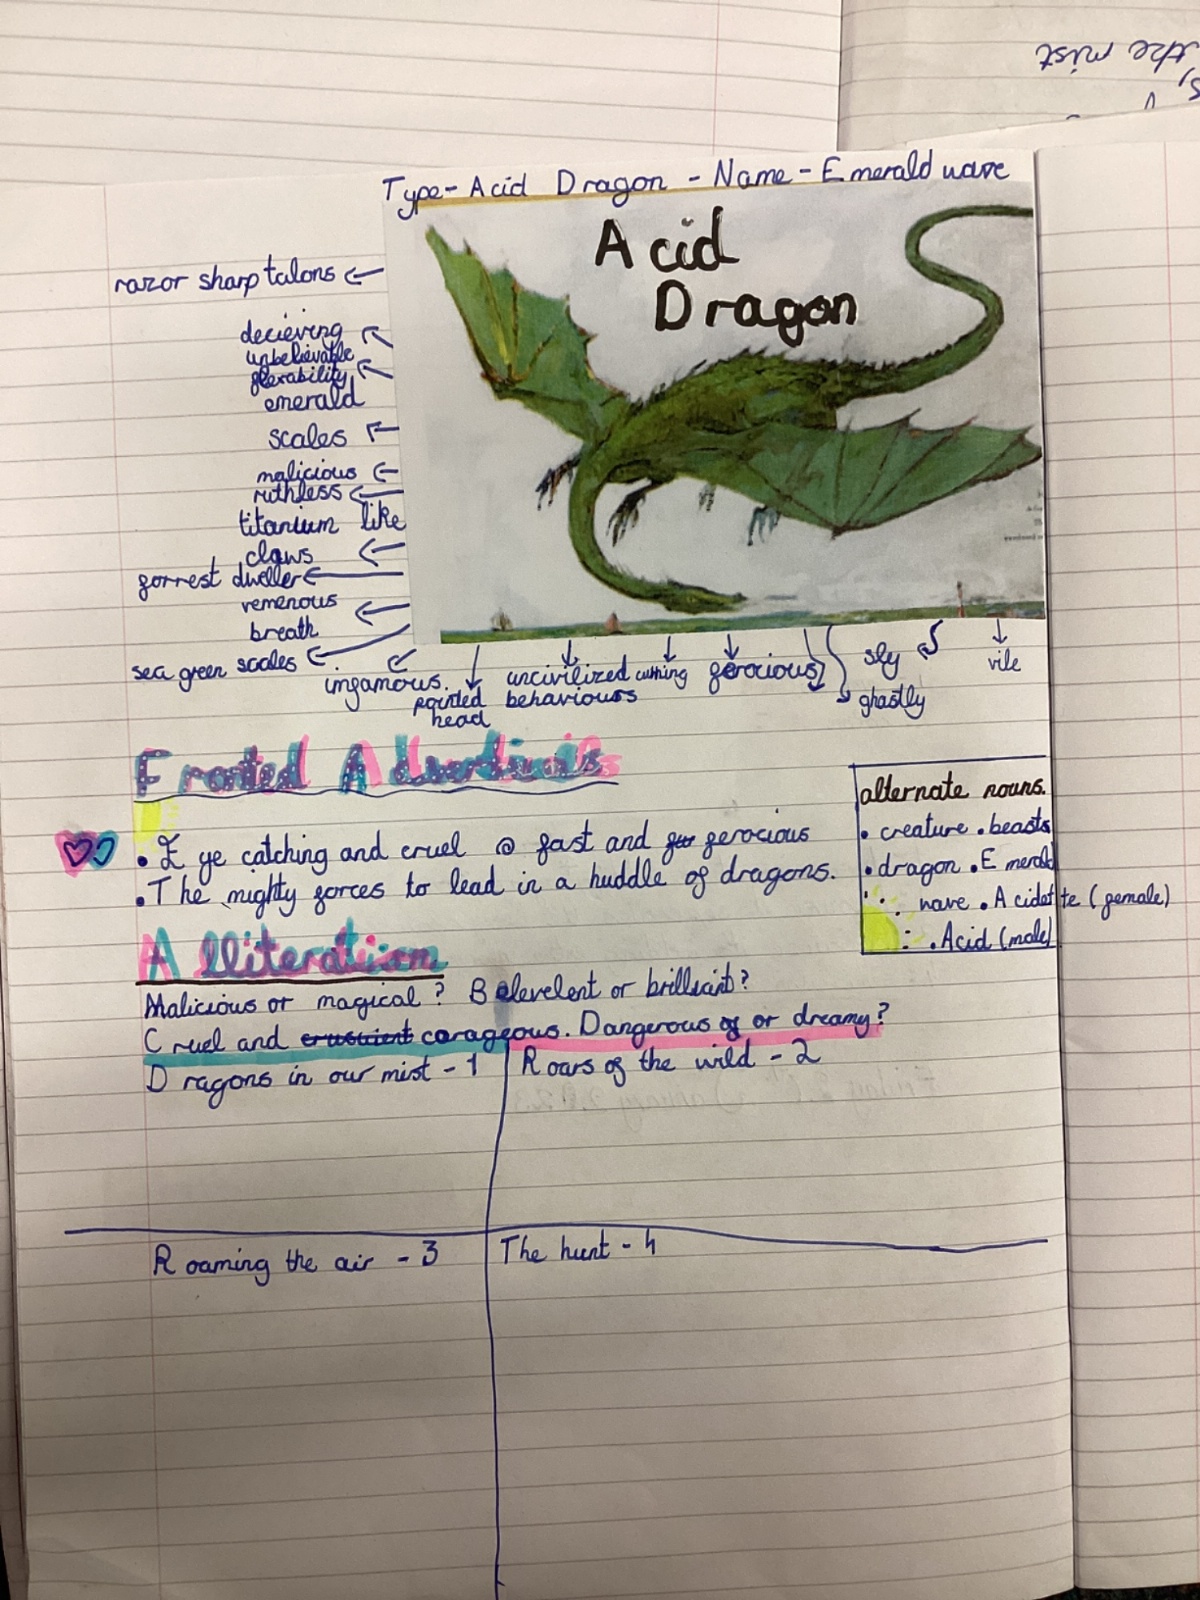 the mist
Type - Acid Dragon - Name - Emerald wave
Acid
Dragon
razor sharp talons
decieving
unbelievable
flexability
emerald
scales
malicious
ruthless
titanium like
claws
forrest dweller
venenous
breath
sea green scales
infamous.
pointed
head
uncivilized
behaviours
cunning
ferocious
sly
ghastly
vile
Fronted Adverbials
• Eye catching and cruel fast and ferocious
• The mighty forces to lead in a huddle of dragons.
alternate nouns.
• creature • beasts
• dragon • Emerald
wave • Acidette (female)
• Acid (male)
Alliteration
Malicious or magical? Belevelent or brilliant?
Cruel and corageous. Dangerous or dreamy?
Dragons in our mist - 1
Roars of the wild - 2
Roaming the air - 3
The hunt - 4